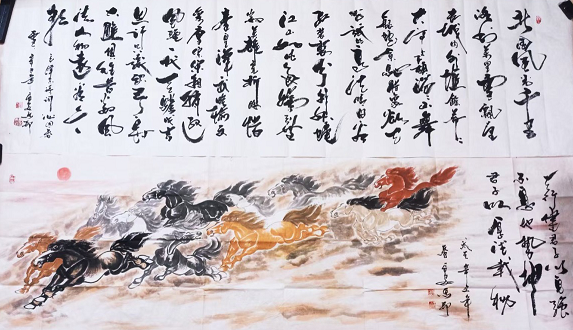 北國風光千里
冰封萬里雪飄望
長城内外惟餘莽莽
大河上下頓失滔滔山舞
銀蛇原馳蠟象欲與
天公試比高須晴日看
紅裝素裹分外妖嬈
江山如此多嬌引無數
英雄競折腰惜
秦皇漢武略輸文
采唐宗宋祖稍遜
風騷一代天驕成吉
思汗只識彎弓射
大雕俱往矣數風
流人物還看今
朝 毛澤東詩詞沁園春
雪
天行健君子以自強
不息地勢坤
君子以厚德載物